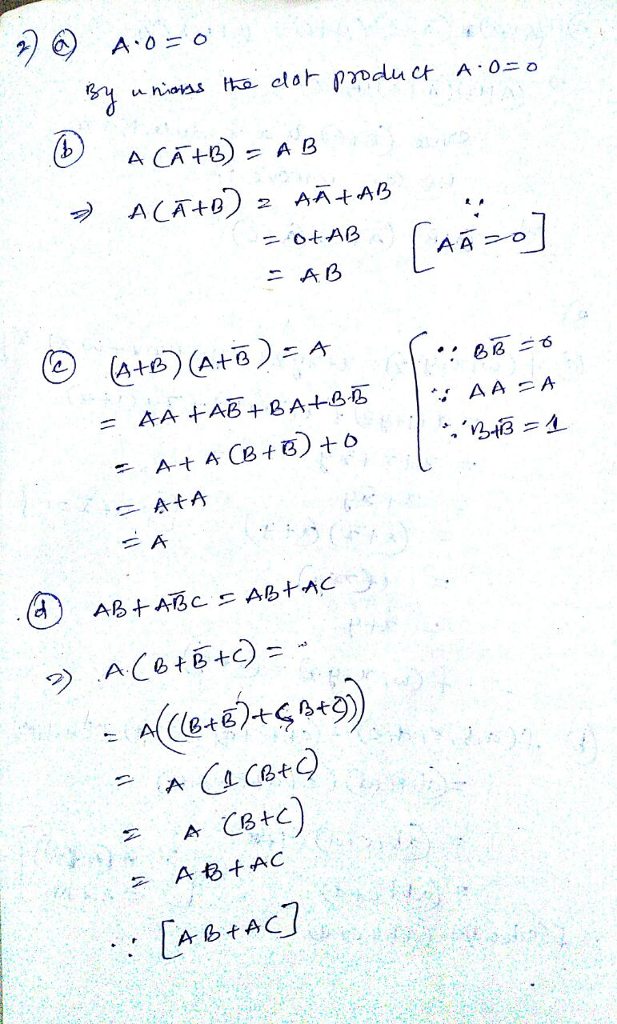 2) ⓐ A·0 = 0
By the dot product A·0=0
ⓑ A(Ā+B) = AB
⇒ A(Ā+B) = AĀ+AB
= 0+AB [∵ AĀ=0]
= AB
ⓒ (A+B)(A+B̄) = A
= AA+AB̄+BA+BB̄
= A+A(B+B̄)+0
= A+A
= A
∵ BB̄=0
∵ AA=A
∵ B+B̄=1
ⓓ AB+AB̄C = AB+AC
⇒ A(B+B̄+C) =
= A((B+B̄)+(B+C))
= A(1(B+C)
= A(B+C)
= AB+AC
∴ [AB+AC]